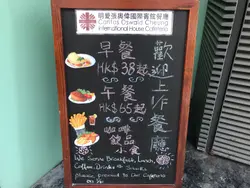 明愛張奧偉國際賓館餐廳
Caritas Oswald Cheung
International House Cafeteria
歡迎上1/F餐廳
早餐
HK$38起
午餐
HK$65起
咖啡
飲品
小食
We Serve Breakfast, Lunch,
Coffee, Drinks & Snacks
please proceed to Our Cafeteria
on 1/F